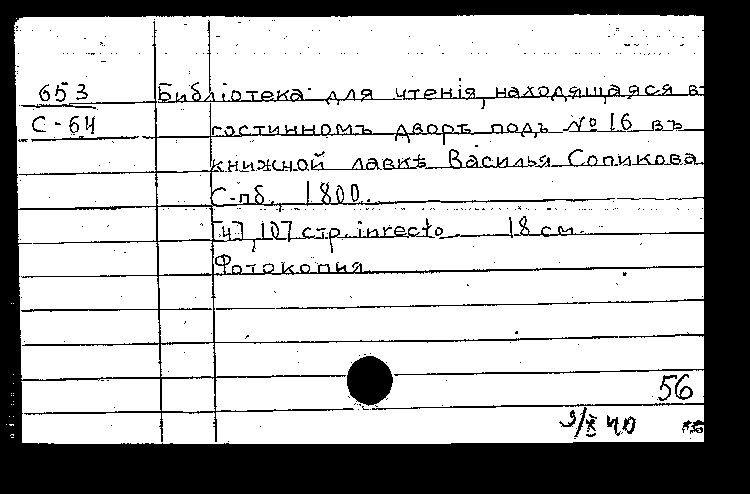 653 Библіотека для чтенія, находящаяся въ
С-64 гостинномъ дворѣ подъ № 16 въ
книжной лавкѣ Василья Сопикова
С-пб., 1800.
[4], 107 стр. in recto 18 см.
Фотокопия
56
9/X 40